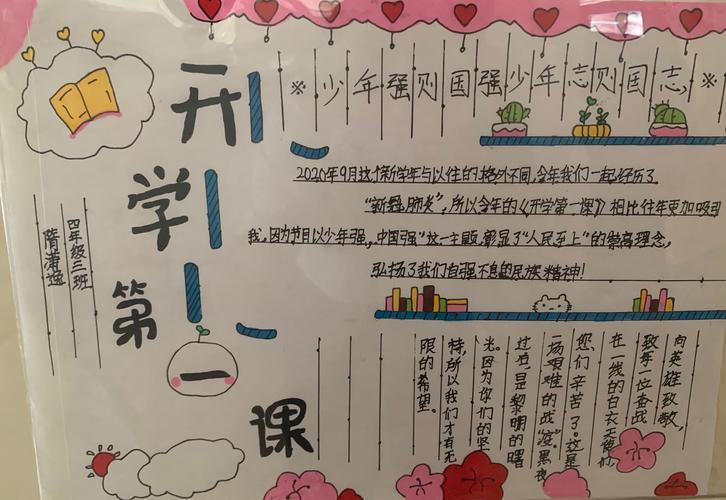 开学第一课
※少年强则国强少年志则国志※
四年级三班
2020年9月这个新学年与以往的格外不同,今年我们一起经历了
“新冠肺炎”,所以今年的《开学第一课》相比往年更加吸引
我,因为节目以少年强,中国强”这一主题,彰显了“人民至上”的崇高理念,
弘扬了我们自强不息的民族精神!
向英雄致敬,
致每一位奋战
在一线的白衣天使们,
您们辛苦了。这是
一场艰难的战“疫”。黑夜
过后,是黎明的曙
光。因为你们的坚
持,所以我们才有无
限的希望。